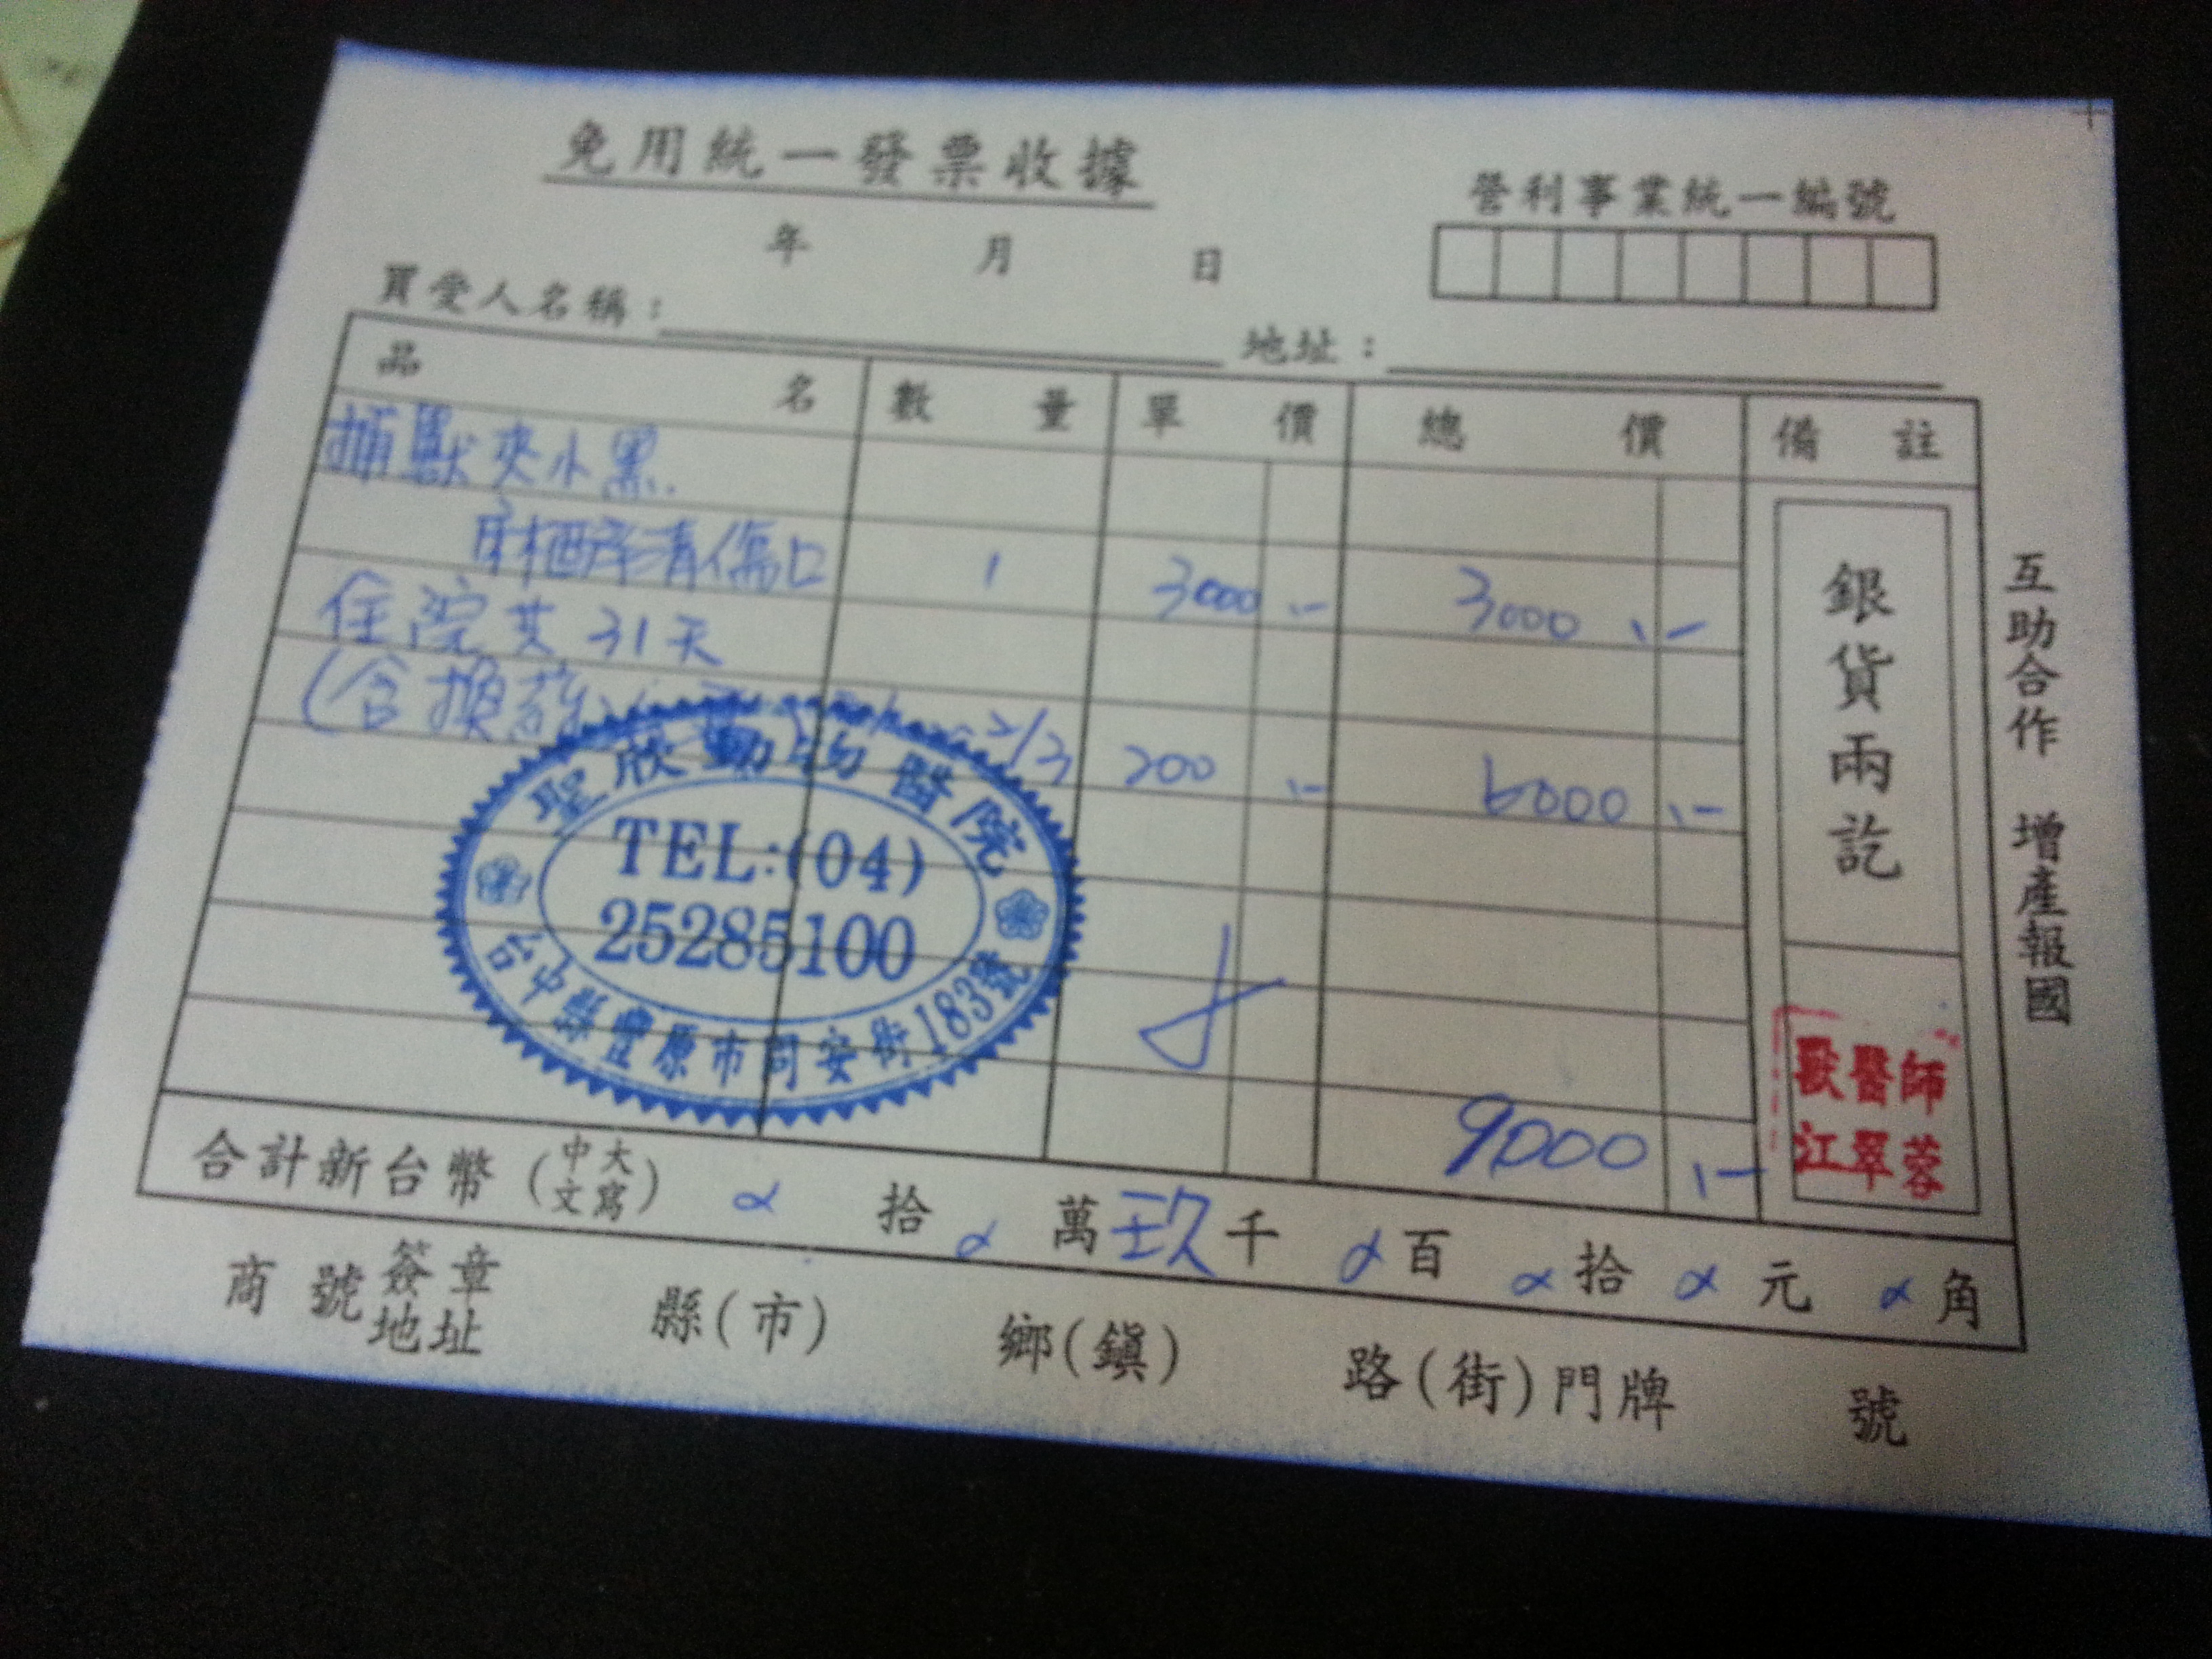 免用統一發票收據
營利事業統一編號
年 月 日
買受人名稱： 地址：
品名 數量 單價 總價 備註
捕獸夾小黑
麻醉清傷口 1 3000.- 3000.-
住院共31天
(含換藥 2/3 200.- 6000.-
聖欣動物醫院
TEL:(04)
25285100
台中縣豐原市同安街183號
9000.-
銀貨兩訖
獸醫師
江翠蓉
互助合作 增產報國
合計新台幣(中文大寫) 拾 萬 玖 千 百 拾 元 角
商號簽章地址 縣(市) 鄉(鎮) 路(街)門牌 號